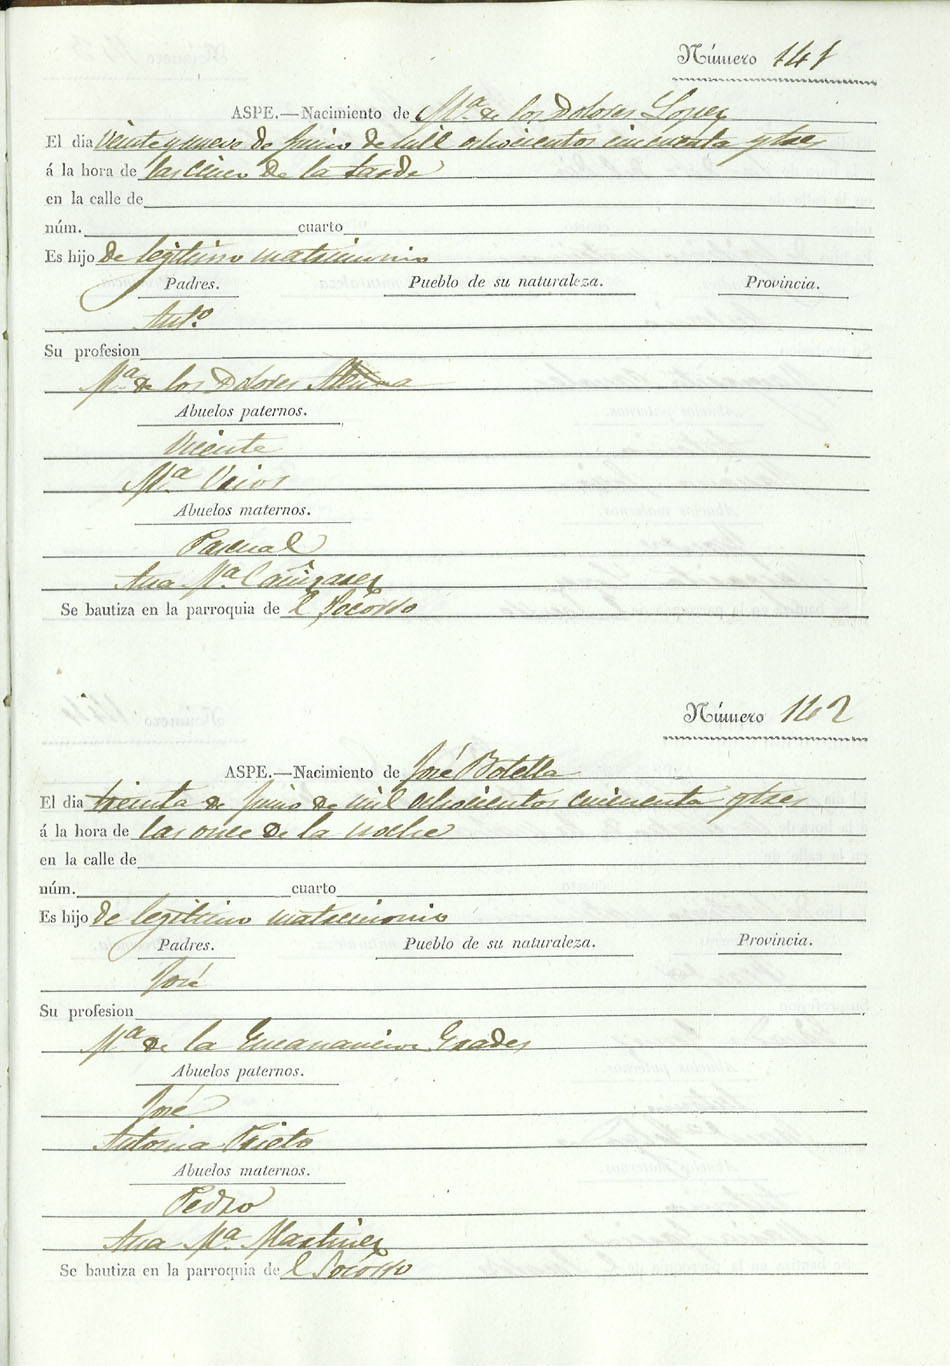 Número 141
ASPE.—Nacimiento de Mª. de los Dolores Lopez
El dia veinte y nueve de Junio de mil ochocientos cincuenta y tres
á la hora de las cinco de la tarde
en la calle de
núm. cuarto
Es hijo de legitimo matrimonio
Padres. Pueblo de su naturaleza. Provincia.
Antº.
Su profesion
Mª. de los Dolores
Abuelos paternos.
Vicente
Mª.
Abuelos maternos.
Pascual
Ana Mª. Cañizares
Se bautiza en la parroquia de l Socorro
Número 142
ASPE.—Nacimiento de José Botella
El dia treinta de Junio de mil ochocientos cincuenta y tres
á la hora de las once de la noche
en la calle de
núm. cuarto
Es hijo de legitimo matrimonio
Padres. Pueblo de su naturaleza. Provincia.
José
Su profesion
Mª. de la Encarnacion
Abuelos paternos.
José
Antonia Prieto
Abuelos maternos.
Pedro
Ana Mª. Martinez
Se bautiza en la parroquia de l Socorro